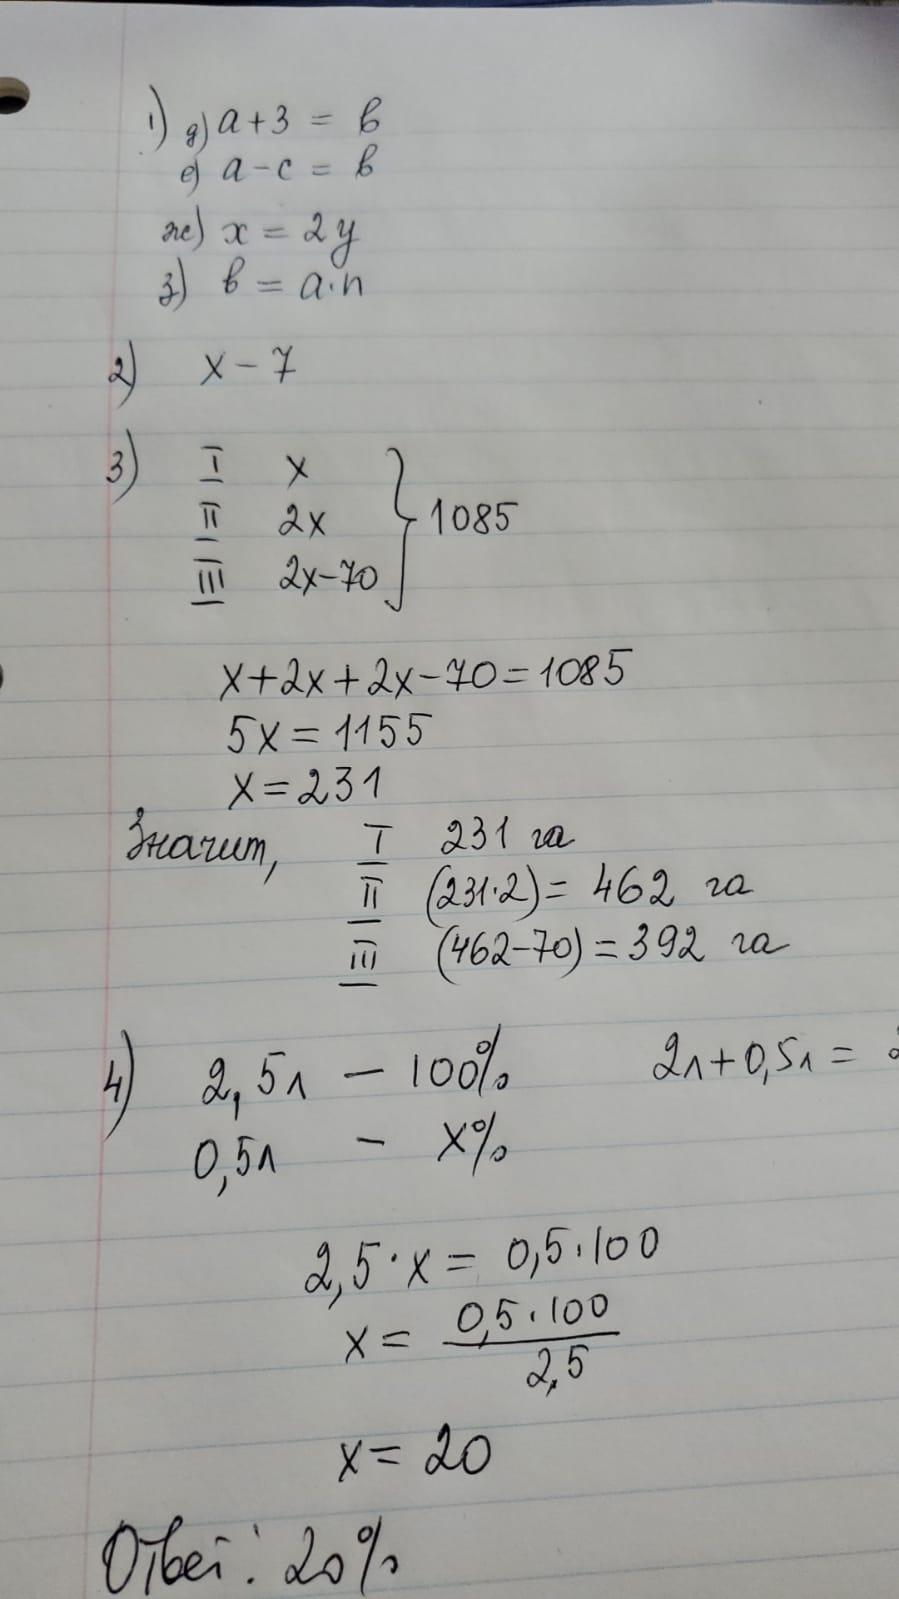 1) д) a+3 = в
е) a-c = в
ж) x = 2y
з) в = a·n
2) x - 7
3) I x
II 2x } 1085
III 2x-70
x+2x+2x-70=1085
5x=1155
x=231
Значит, I 231 га
II (231·2)= 462 га
III (462-70)=392 га
4) 2,5л - 100% 2л+0,5л =
0,5л - x%
2,5·x= 0,5·100
x= 0,5·100
2,5
x= 20
Ответ: 20%